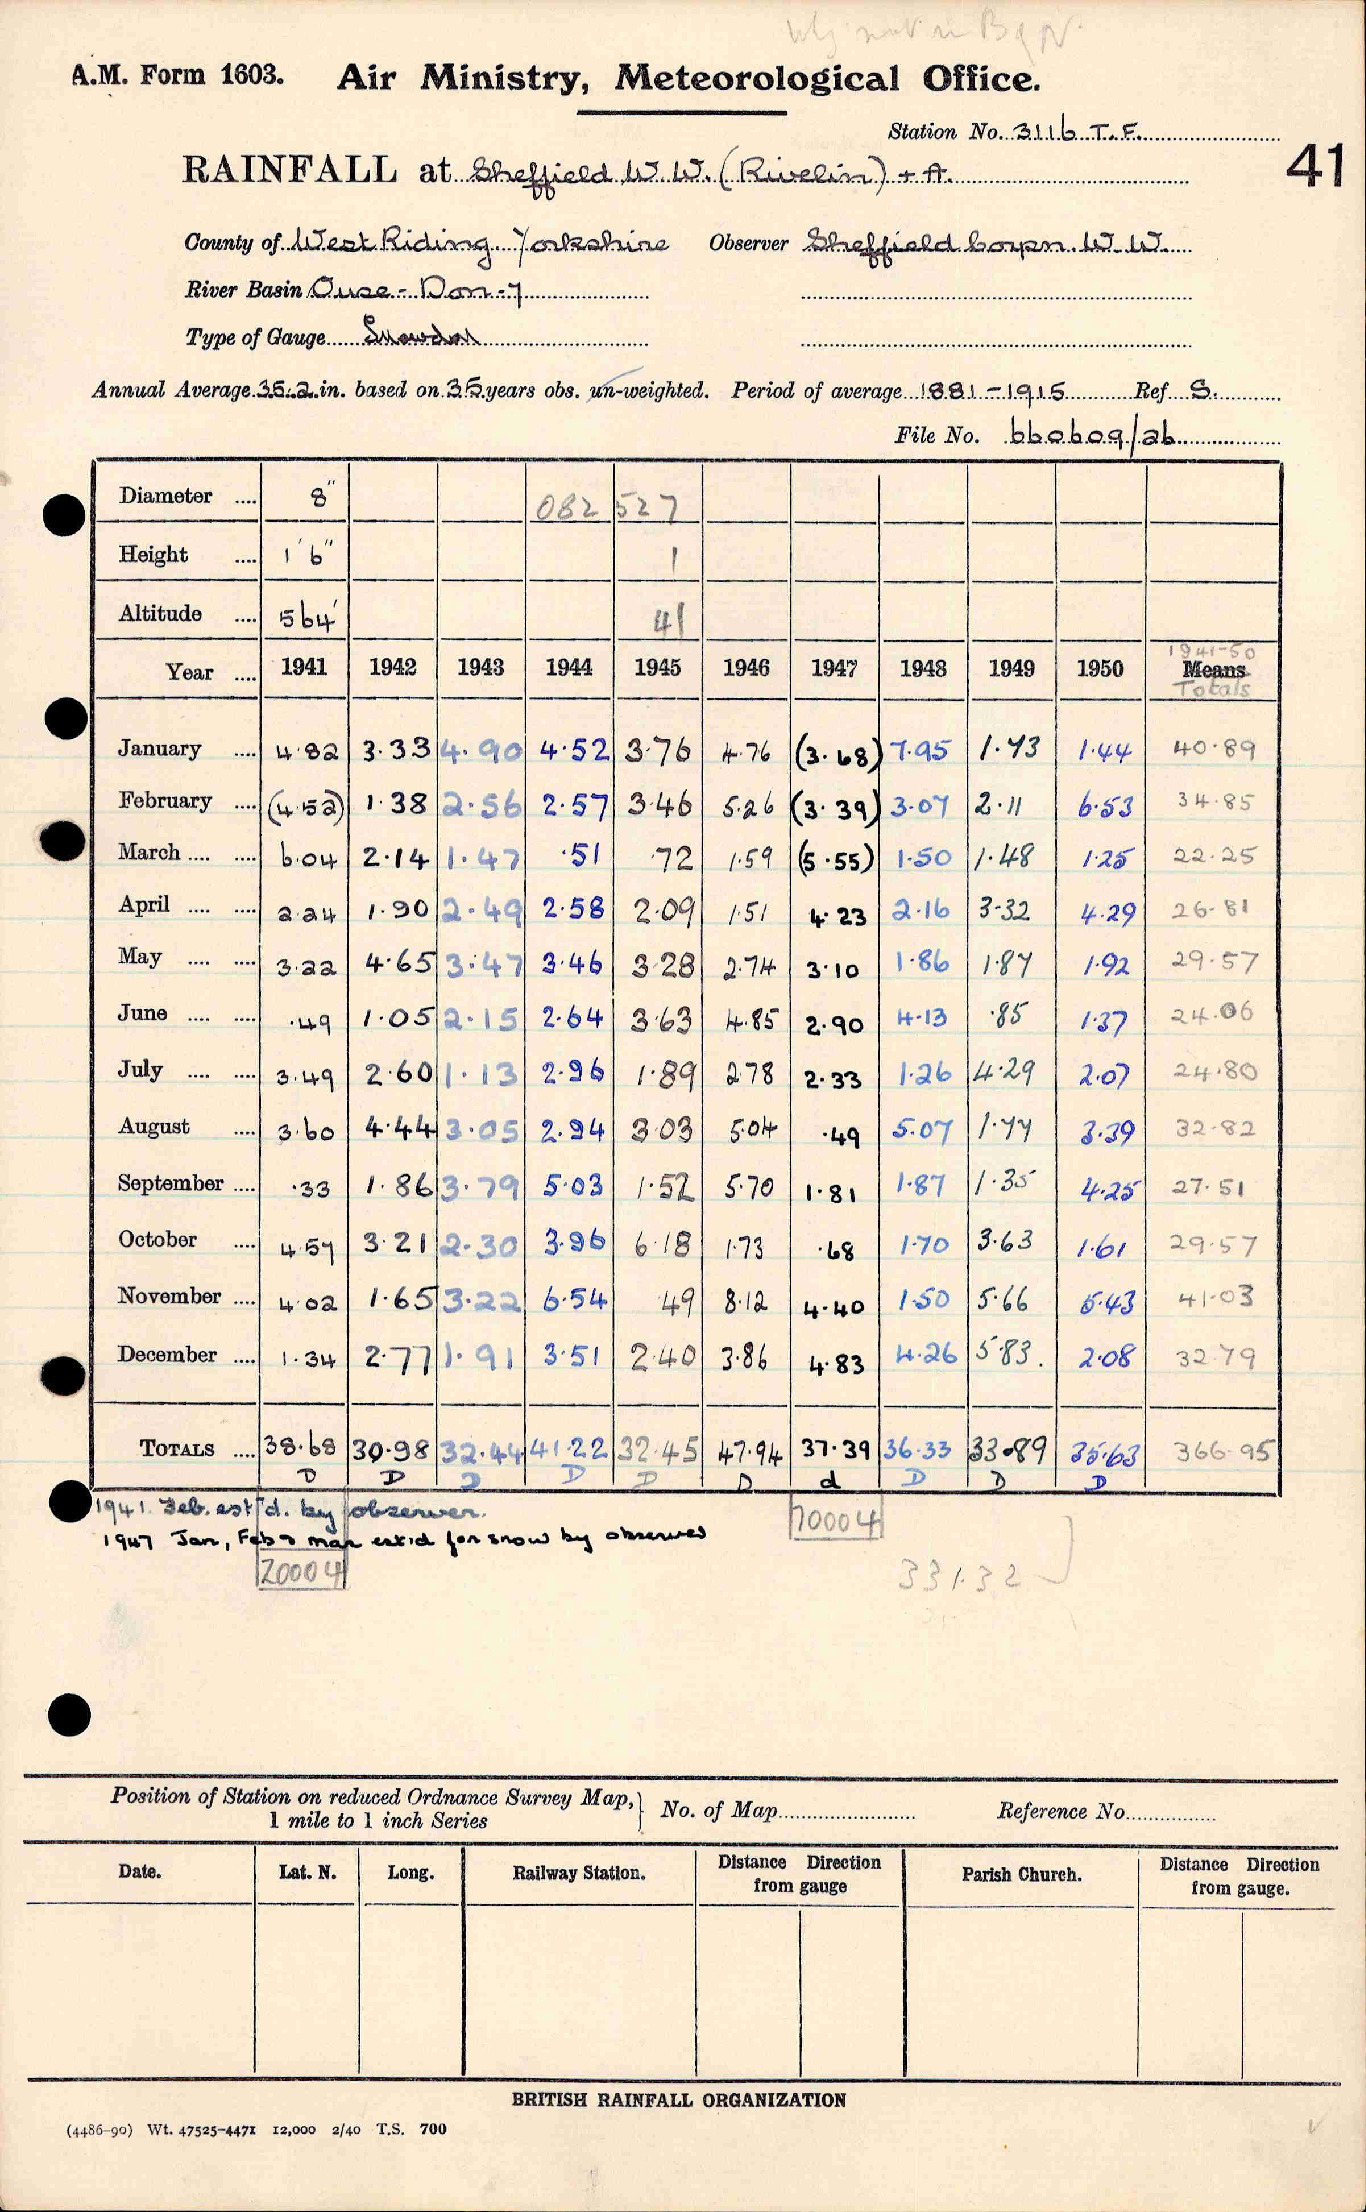 A.M. Form 1603. Air Ministry, Meteorological Office.
Station No. 3116 T.F.
41
RAINFALL at Sheffield W.W. (Rivelin) + A.
County of West Riding, Yorkshire Observer Sheffield Corpn. W.W.
River Basin Ouse - Don - 7
Type of Gauge Snowdon
Annual Average 35.2 in. based on 35 years obs. un-weighted. Period of average 1881-1915 Ref S.
File No. 660609/26
Diameter .... 8" 082 527
Height .... 1' 6" 1
Altitude .... 564' 41
1941-50
Year .... 1941 1942 1943 1944 1945 1946 1947 1948 1949 1950 Means
Totals
January .... 4.82 3.33 4.90 4.52 3.76 4.76 (3.68) 7.95 1.73 1.44 40.89
February .... (4.52) 1.38 2.56 2.57 3.46 5.26 (3.39) 3.07 2.11 6.53 34.85
March .... .... 6.04 2.14 1.47 .51 .72 1.59 (5.55) 1.50 1.48 1.25 22.25
April .... .... 2.24 1.90 2.49 2.58 2.09 1.51 4.23 2.16 3.32 4.29 26.81
May .... .... 3.22 4.65 3.47 3.46 3.28 2.74 3.10 1.86 1.87 1.92 29.57
June .... .... .49 1.05 2.15 2.64 3.63 4.85 2.90 4.13 .85 1.37 24.06
July .... .... 3.49 2.60 1.13 2.96 1.89 2.78 2.33 1.26 4.29 2.07 24.80
August .... 3.60 4.44 3.05 2.94 3.03 5.04 .49 5.07 1.77 3.39 32.82
September .... .33 1.86 3.79 5.03 1.52 5.70 1.81 1.87 1.35 4.25 27.51
October .... 4.57 3.21 2.30 3.96 6.18 1.73 .68 1.70 3.63 1.61 29.57
November .... 4.02 1.65 3.22 6.54 .49 8.12 4.40 1.50 5.66 5.43 41.03
December .... 1.34 2.77 1.91 3.51 2.40 3.86 4.83 4.26 5.83 2.08 32.79
TOTALS .... 38.68 30.98 32.44 41.22 32.45 47.94 37.39 36.33 33.89 35.63 366.95
D D D D D D d D D D
1941. Feb. est'd. by observer.
70004
1947 Jan, Feb & Mar est'd for snow by observer
20004
331.32
Position of Station on reduced Ordnance Survey Map, } No. of Map Reference No.
1 mile to 1 inch Series
Date. Lat. N. Long. Railway Station. Distance Direction from gauge Parish Church. Distance Direction from gauge.
BRITISH RAINFALL ORGANIZATION
(4486-90) Wt. 47525-4471 12,000 2/40 T.S. 700